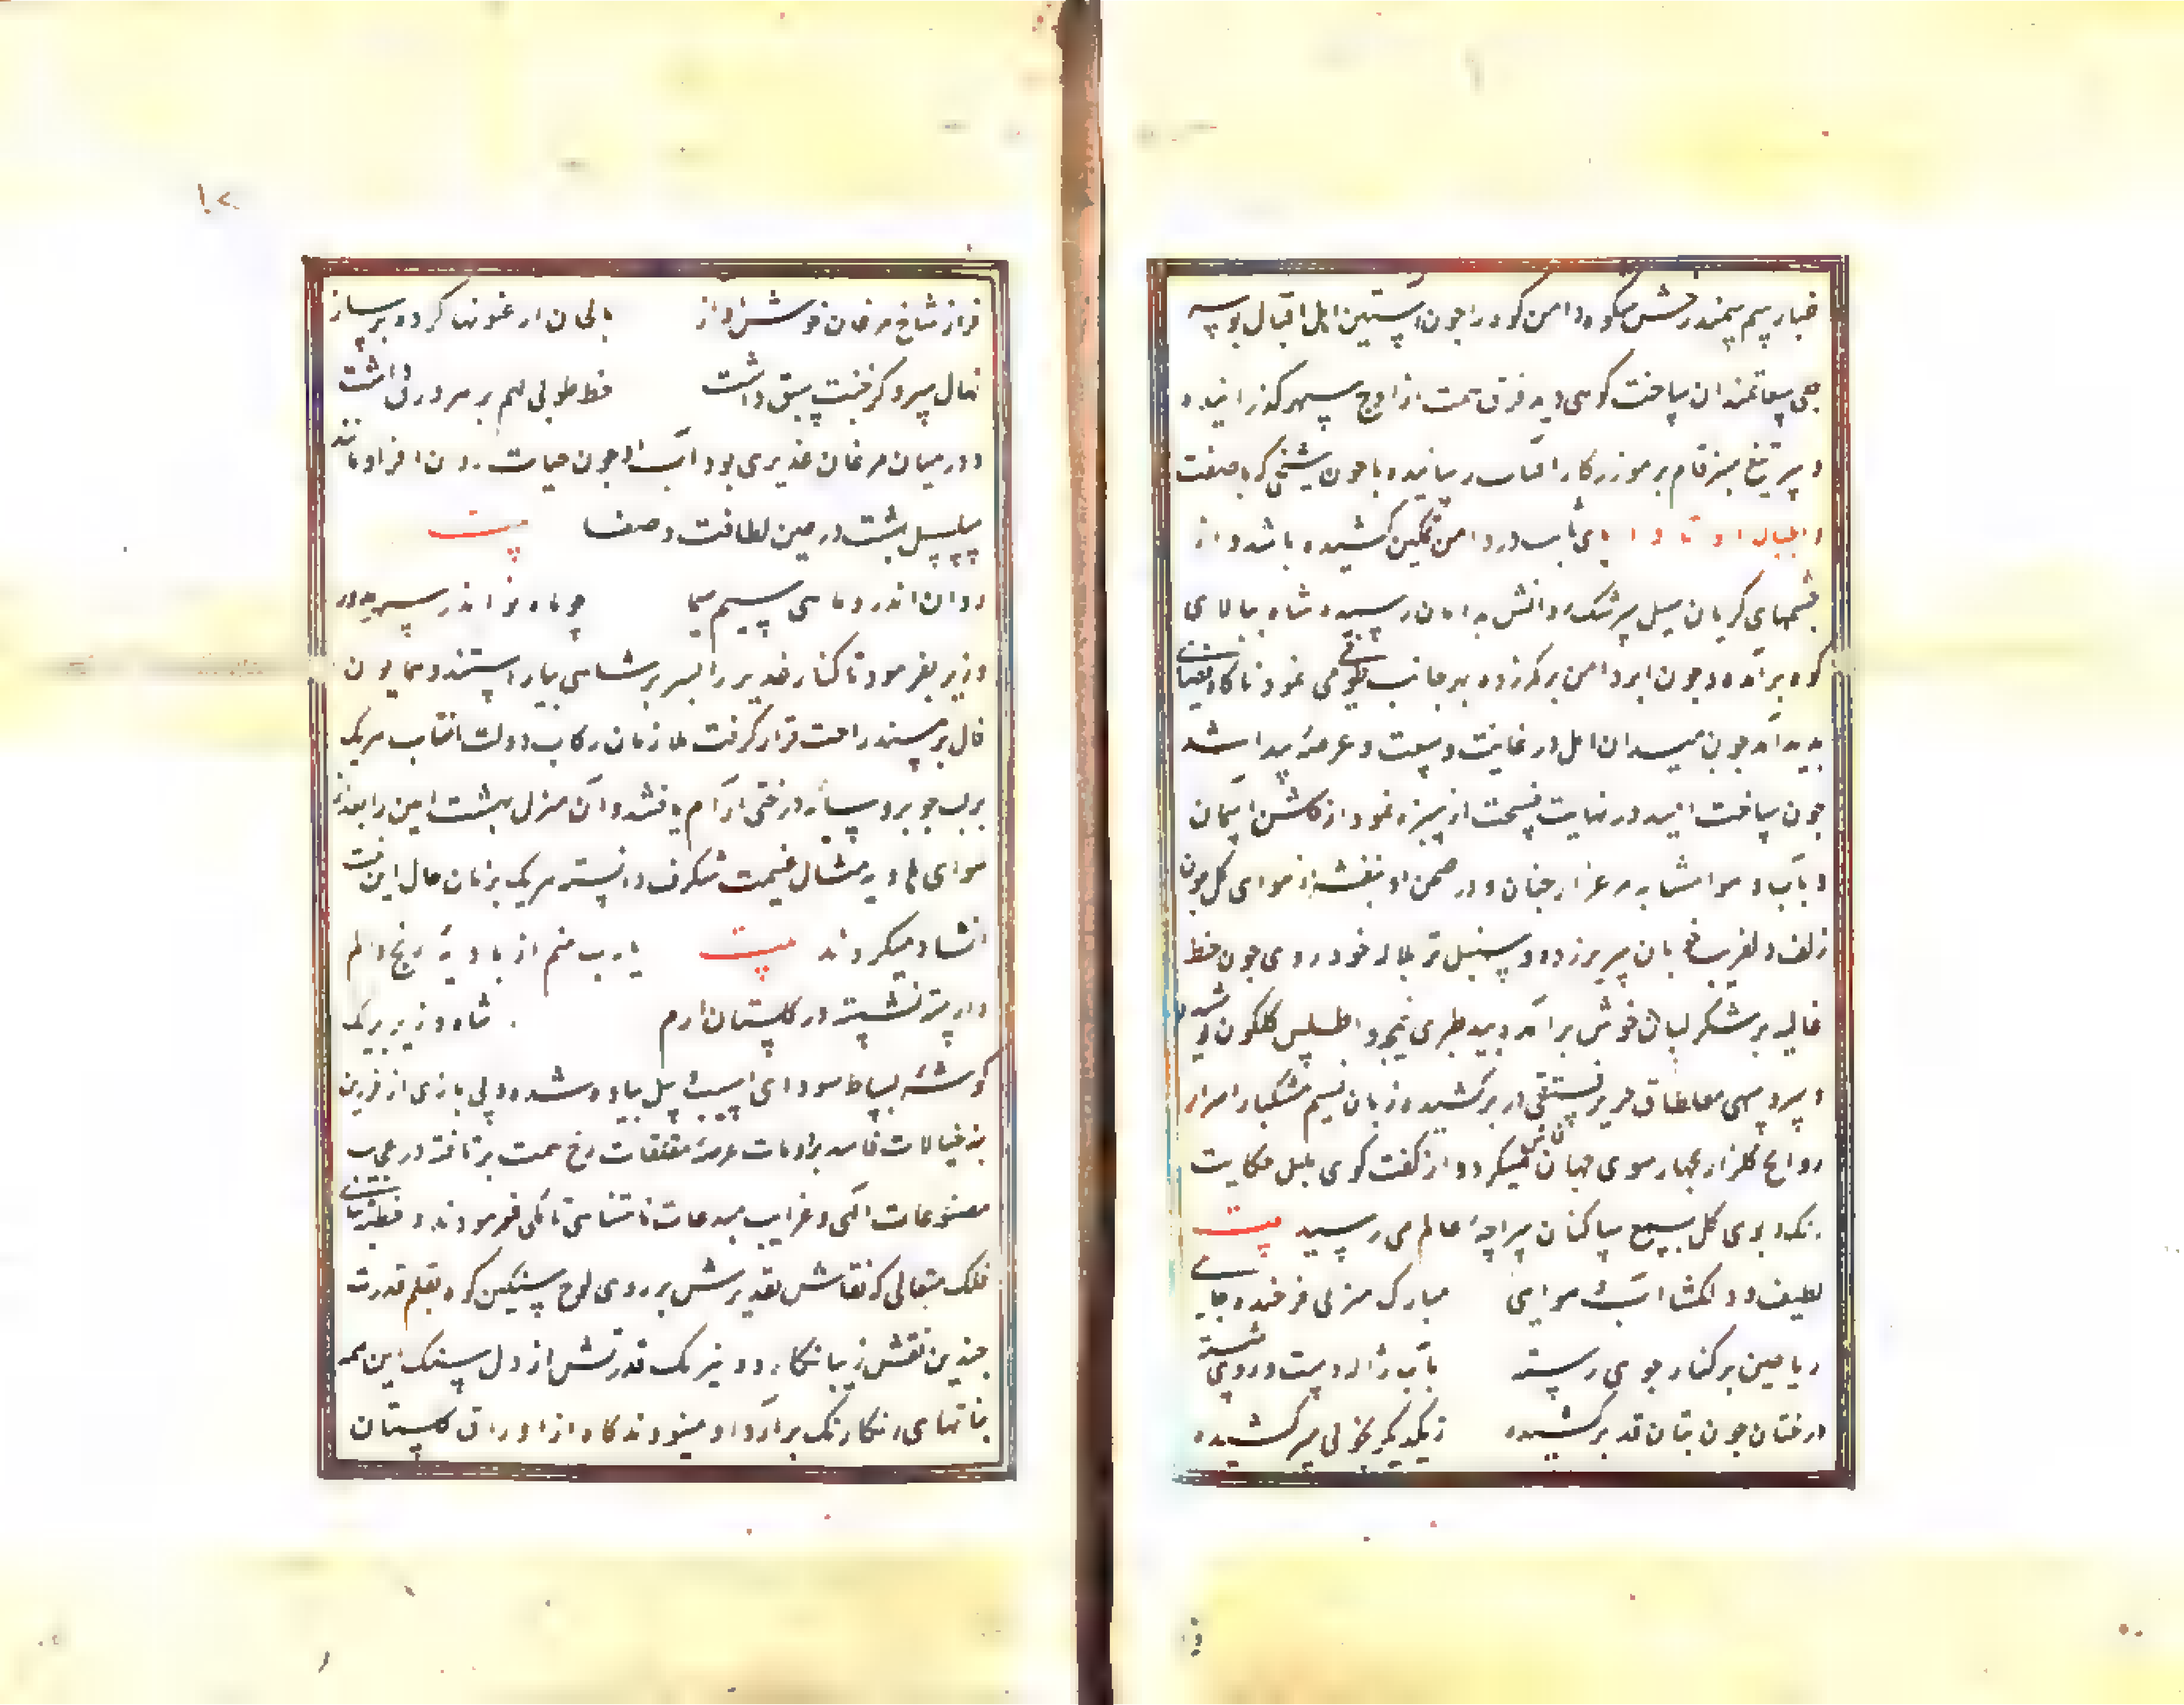 غبار سم سمندرخش شکوه دامن کوه را چون آستین اهل اقبال بوسه
جای سعادتمندان ساخت کوهی دید فرق همت از اوج سپهر گذرانیده
و سر تیغ سبز فام بر موزر کار افتاب رسانیده یا چون شیخی که با صفت
والجبال اوتادا پای ثابت در دامن تمکین کشیده باشد و از
چشمهای کریان سیل سرشک دانش بدامان رسیده شاه ببالای
کوه برآمده و چون ابر دامن بر کمر زده بهر جانب طوفی می نمود ناکاه فضائی
بدید آمد چون میدان امل در غایت وسعت و عرصهٔ پیدا شد
چون ساخت امید در نهایت فسحت از سبزه نمودار کلشن اسمان
و بآب و هوا مشابه مرغزار جنان و در صحن او بنفشه از هوای کل چون
زلف دلفریب خوبان سر برزده و سنبل تر بلاله خودروی چون خط
غالیه بر شکر لبان خوش برآمده بید طبری نیمچه اطلس کلکون
و سرو سهی معاطاق حریر فستقی در بر کشیده زبان نسیم مشکبار اسرار
روایح کلزار بچهار سوی جهان فاش میکرد و از کفت کوی بلبل حکایت
رنک و بوی کل بسمع ساکنان سراچهٔ عالم می رسید بیت
لطیف و دلکشا آب و هوایی مبارک منزلی فرخنده جایی
ریاحین بر کنار جوی رسته بآب ژاله دست و روی شسته
درختان چون بتان قد برکشیده زیکدیکر بخوبی سر کشیده
فراز شاخ مرغان خوش آواز بالحان ارغنونها کرده بر ساز
نهال سرو کز جنت سبق داشت خط طوبی لهم بر هر ورق داشت
و در میان مرغزار غدیری بود آبش چون حیات روان افزا و مانند
سلسبیل بهشت در عین لطافت و صفا بیت
روان اندرو ماهی سیم سیما چو ماه نو اندر سپهر مدور
وزیر بفرمود تا کنار غدیر را بسریر شاهی بیاراستند و همایون
فال بر مسند راحت قرار گرفت ملازمان رکاب دولت انتساب هریک
بر لب جوی و سایهٔ درختی آرام یافتند و آن منزل بهشت آیین را بعد از
هوای هاویه مثال غنیمت شکرف دانسته هریک بزبان حال این بیت
انشاد میکردند بیت یا رب منم از بادیهٔ رنج و الم
وارسته نشسته در کلستان ارم شاه و وزیر بر یک
کوشهٔ بساط سودای اسب و پیل پیاده شده و دل بازی از فرزین
بند خیالات فاسد برآورده عرصهٔ متعلقات رخ همت بر تافته در عجایب
مصنوعات الهی و غرایب مبدعات نامتناهی تاملی فرمودند و خطبهٔ ثنای
ملک متعالی که نقاش تقدیرش بر روی لوح سنکین کوه بقلم قدرت
چندین نقش زیبا نکارد و نیرنک قدرتش از دل سنک این همه
نباتهای رنکارنک برآرد ادا مینمودند کاه از اوراق کلستان